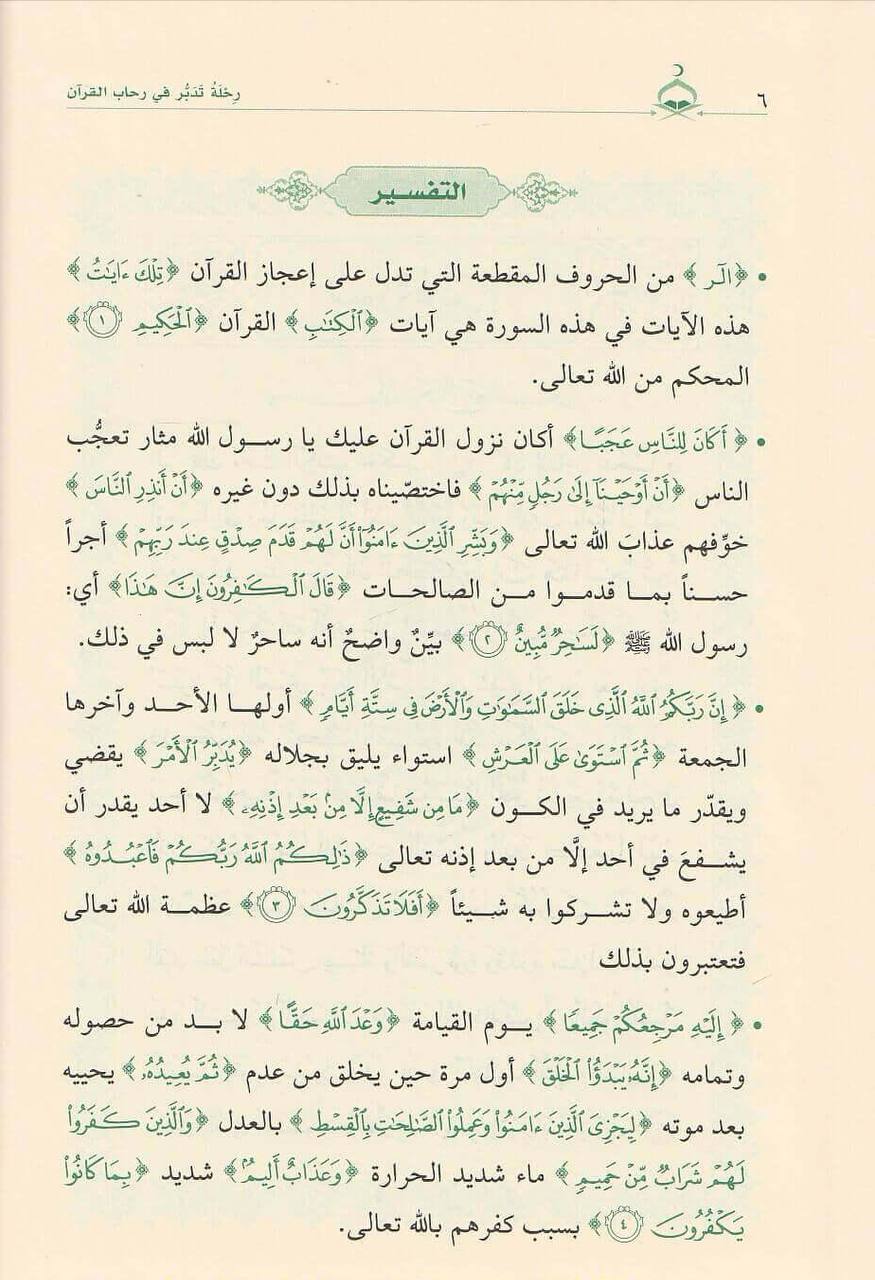 ٦
رِحْلَةُ تَدَبُّر في رحاب القرآن
التفسير
• ﴿الٓر﴾ من الحروف المقطعة التي تدل على إعجاز القرآن ﴿تِلْكَ ءَايَٰتُ﴾
هذه الآيات في هذه السورة هي آيات ﴿الْكِتَٰبِ﴾ القرآن ﴿الْحَكِيمِ ١﴾
المحكم من الله تعالى.
• ﴿أَكَانَ لِلنَّاسِ عَجَبًا﴾ أكان نزول القرآن عليك يا رسول الله مثار تعجُّب
الناس ﴿أَنْ أَوْحَيْنَآ إِلَىٰ رَجُلٍ مِّنْهُمْ﴾ فاختصّيناه بذلك دون غيره ﴿أَنْ أَنذِرِ النَّاسَ﴾
خوِّفهم عذابَ الله تعالى ﴿وَبَشِّرِ الَّذِينَ ءَامَنُوٓا۟ أَنَّ لَهُمْ قَدَمَ صِدْقٍ عِندَ رَبِّهِمْ﴾ أجراً
حسناً بما قدموا من الصالحات ﴿قَالَ الْكَٰفِرُونَ إِنَّ هَٰذَا﴾ أي:
رسول الله ﷺ ﴿لَسَٰحِرٌ مُّبِينٌ ٢﴾ بيِّنٌ واضحٌ أنه ساحرٌ لا لبس في ذلك.
• ﴿إِنَّ رَبَّكُمُ اللَّهُ الَّذِى خَلَقَ السَّمَٰوَٰتِ وَالْأَرْضَ فِى سِتَّةِ أَيَّامٍ﴾ أولها الأحد وآخرها
الجمعة ﴿ثُمَّ اسْتَوَىٰ عَلَى الْعَرْشِ﴾ استواء يليق بجلاله ﴿يُدَبِّرُ الْأَمْرَ﴾ يقضي
ويقدّر ما يريد في الكون ﴿مَا مِن شَفِيعٍ إِلَّا مِنۢ بَعْدِ إِذْنِهِۦ﴾ لا أحد يقدر أن
يشفعَ في أحد إلَّا من بعد إذنه تعالى ﴿ذَٰلِكُمُ اللَّهُ رَبُّكُمْ فَاعْبُدُوهُ﴾
أطيعوه ولا تشركوا به شيئاً ﴿أَفَلَا تَذَكَّرُونَ ٣﴾ عظمة الله تعالى
فتعتبرون بذلك
• ﴿إِلَيْهِ مَرْجِعُكُمْ جَمِيعًا﴾ يوم القيامة ﴿وَعْدَ اللَّهِ حَقًّا﴾ لا بد من حصوله
وتمامه ﴿إِنَّهُۥ يَبْدَؤُا۟ الْخَلْقَ﴾ أول مرة حين يخلق من عدم ﴿ثُمَّ يُعِيدُهُۥ﴾ يحييه
بعد موته ﴿لِيَجْزِىَ الَّذِينَ ءَامَنُوا۟ وَعَمِلُوا۟ الصَّٰلِحَٰتِ بِالْقِسْطِ﴾ بالعدل ﴿وَالَّذِينَ كَفَرُوا۟
لَهُمْ شَرَابٌ مِّنْ حَمِيمٍ﴾ ماء شديد الحرارة ﴿وَعَذَابٌ أَلِيمٌۢ﴾ شديد ﴿بِمَا كَانُوا۟
يَكْفُرُونَ ٤﴾ بسبب كفرهم بالله تعالى.